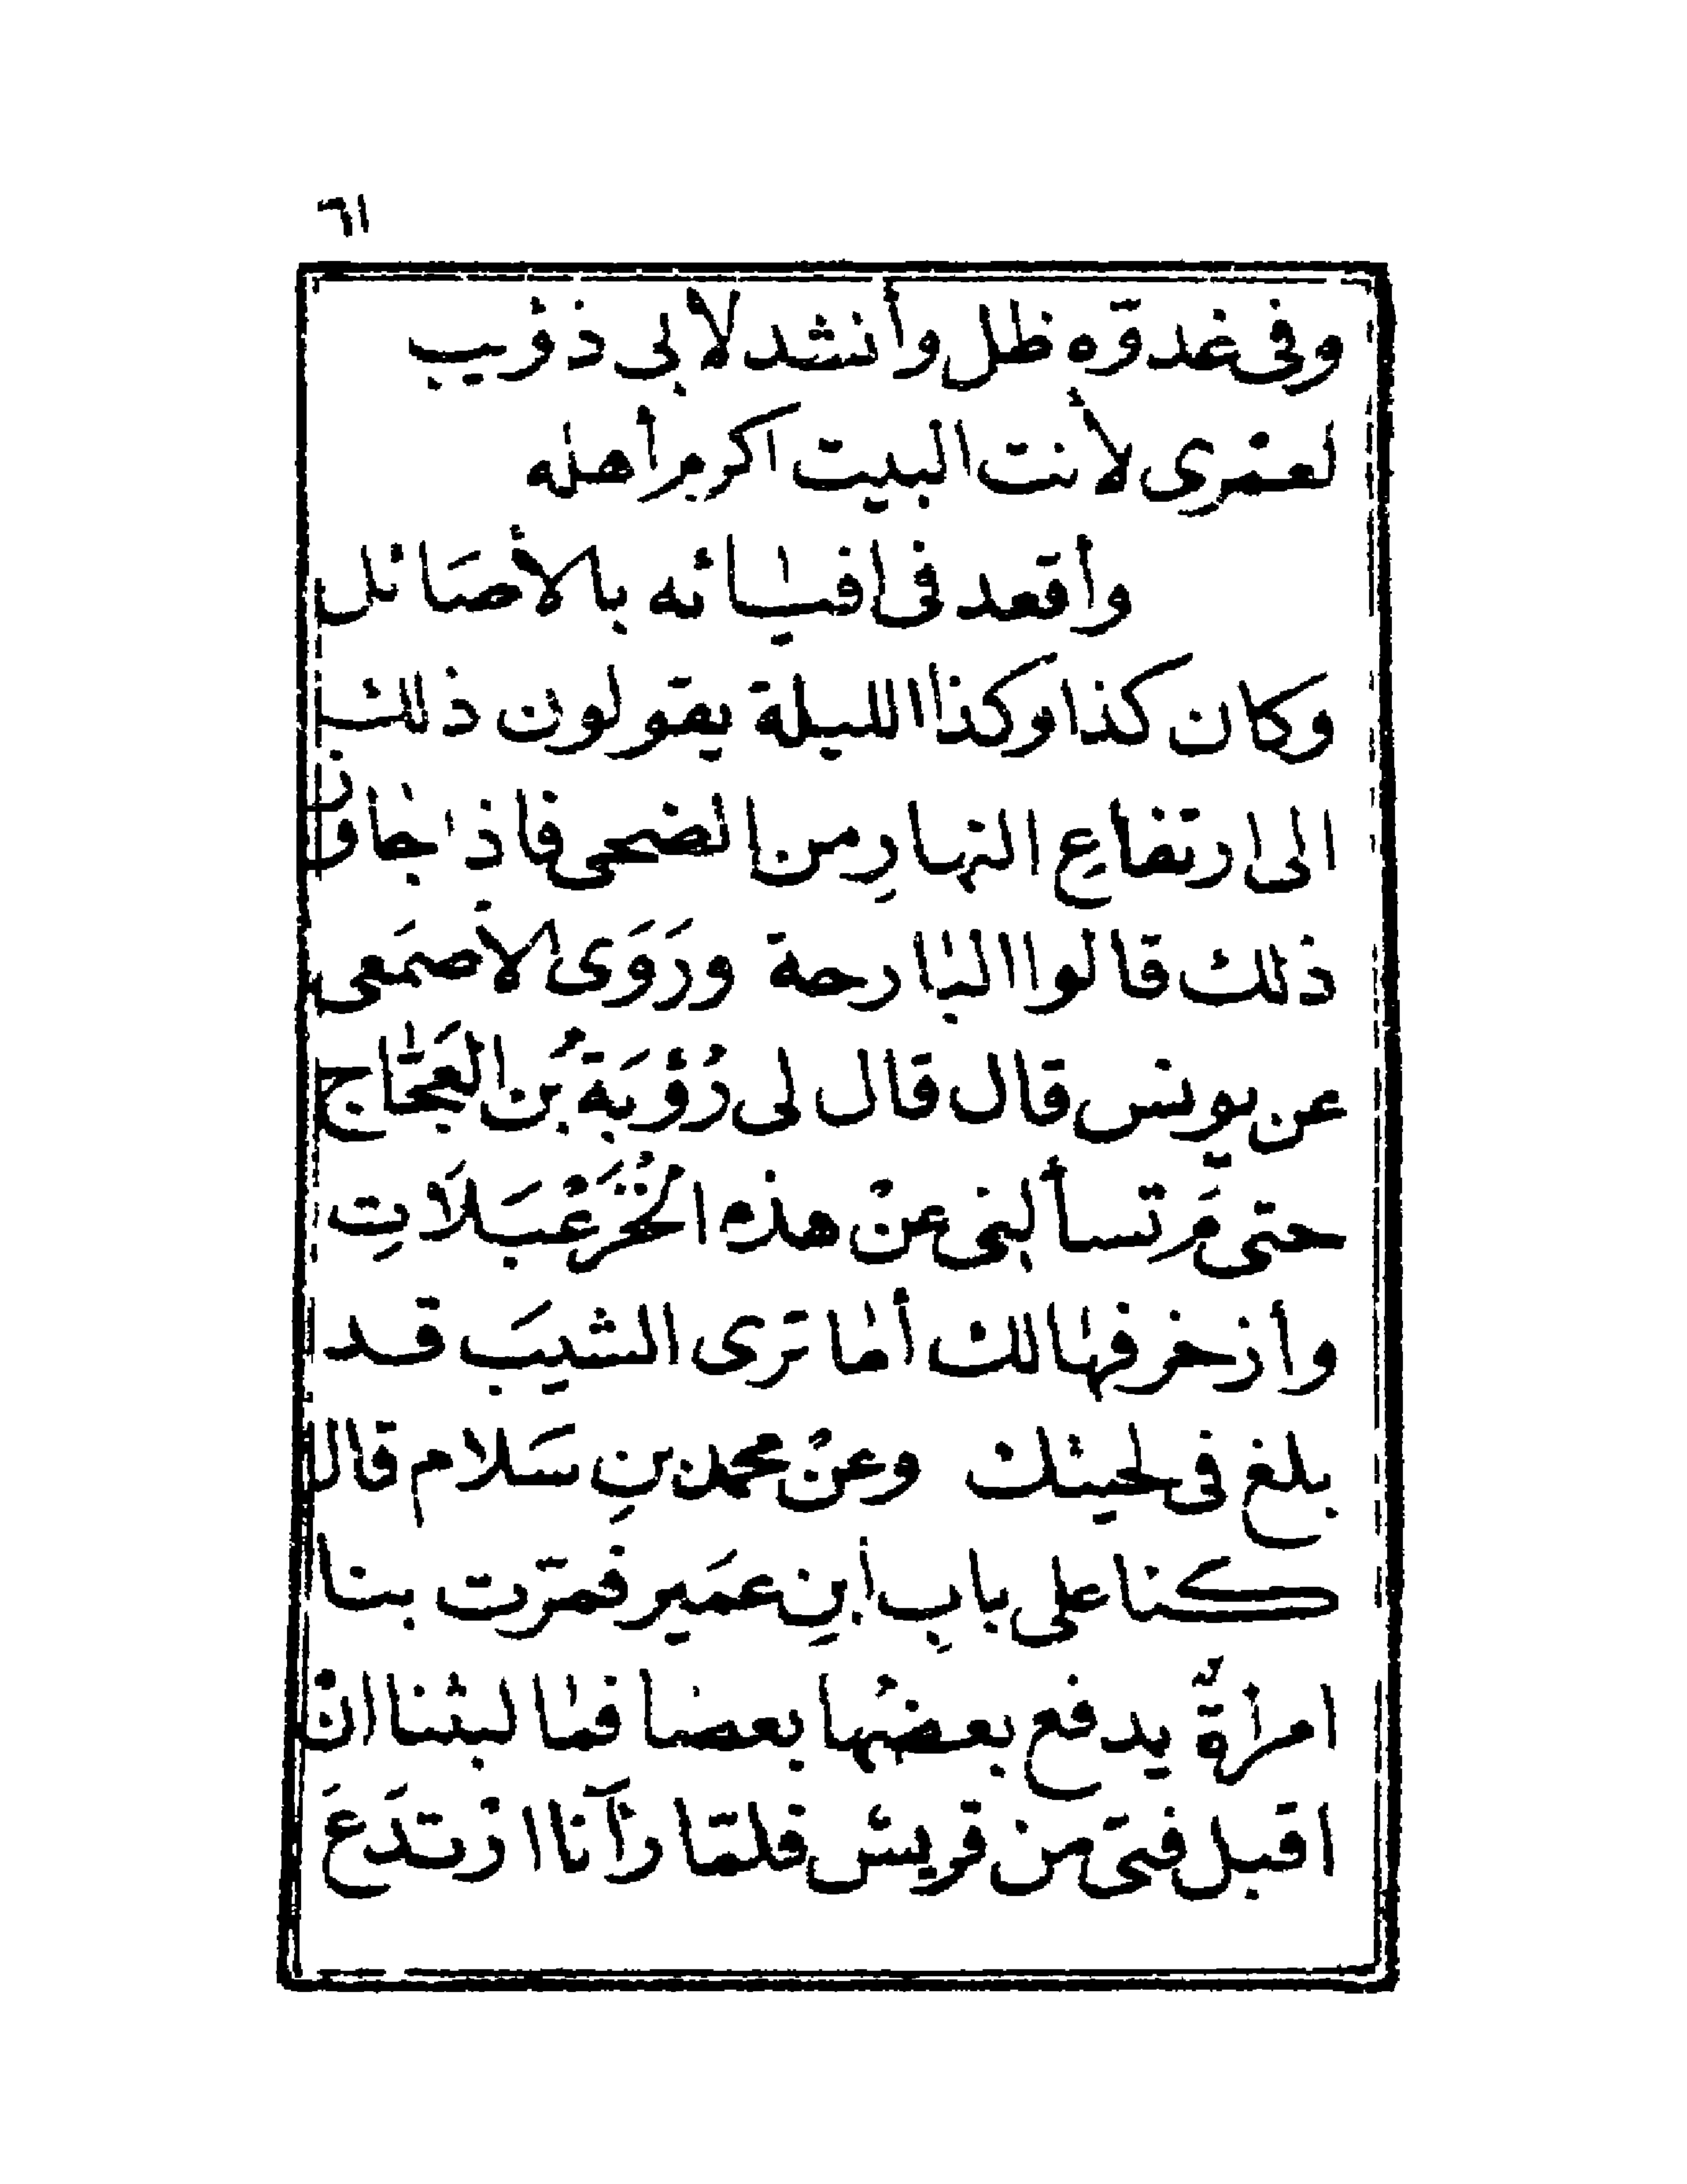 ٦١
وفى غدوّه ظل وأنشد لأبى ذؤيب
لعمْرى لأنت البيت اكرم أهله
وأقعد فى افيائه بالأصَائل
وكان كذا وكذا الليلة يقولون ذلك
الى ارتفاعِ النهارِ من الضحى فاذا جاوز
ذلك قالوا البارحة ورَوَى الأصمَعى
عن يونس قال قال لى رُؤْبَة بُن العَجّاج
حتى مَ تسألنى عنْ هذه الخُزَعْبَلَاتِ
وأزخرفها لك أما ترى الشيبَ قد
بلغ فى لحيتك وعنْ محمد بنِ سَلام قال
كنا على بابِ ابنِ عمَير فمرّت بنا
امرأةٌ يدفع بعضُها بعضا فما لبثنا انْ
اقبل فتىً من قريش فلمّا رأٓنا ارْتدَعَ